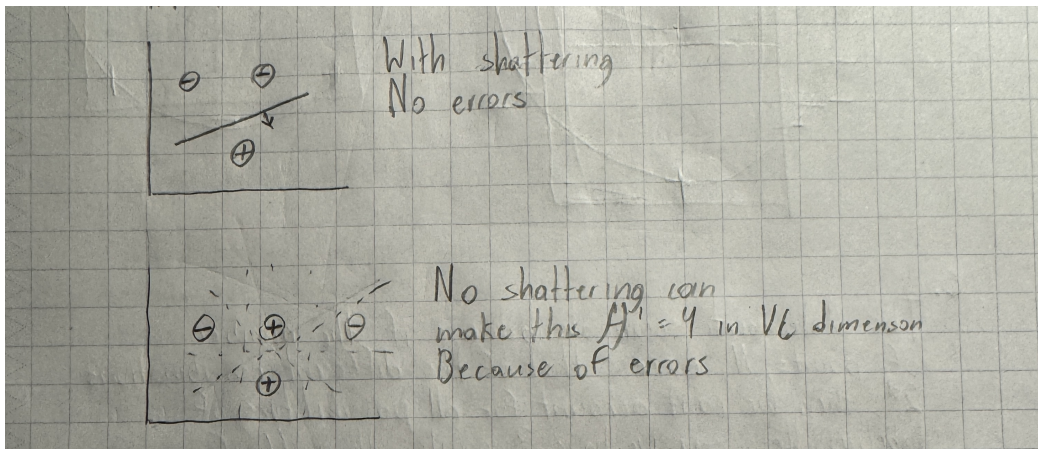 ⊖ ⊖
⊕
With shattering
No errors
⊖ ⊕ ⊖
⊕
No shattering can
make this = 4 in VC dimenson
Because of errors